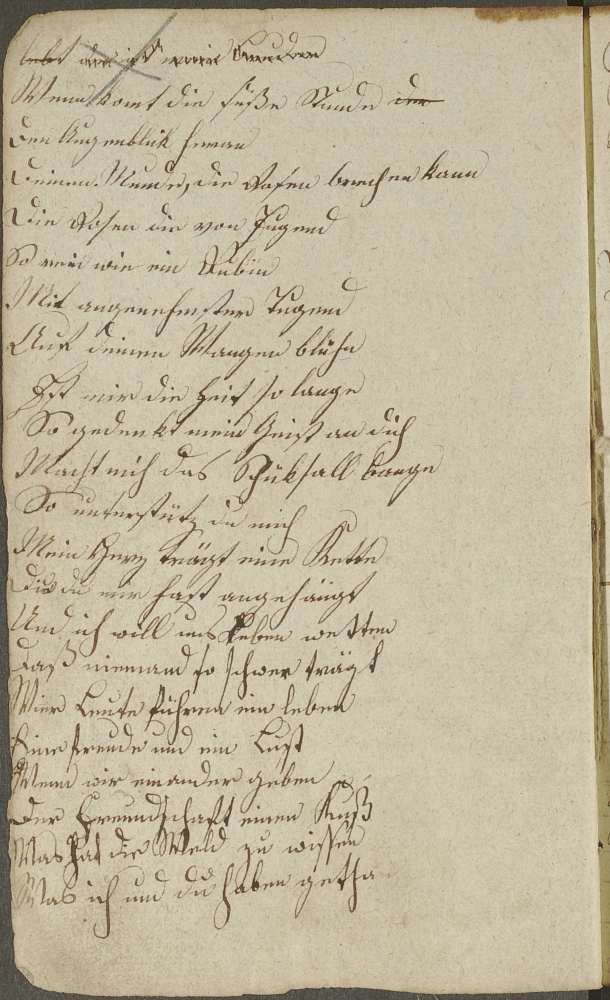 lebt
Wenn komt die süße Stunde der
Den Augenblick heran
Deinem Munde, die Rosen brechen kann
Die Rosen die von Jugend
So wie ein Rubin
Mit angenehmster Tugend
Auf deinen Wangen blühn
Ist mir die Zeit so lange
So gedenkt mein Geist an dich
Macht mich das Schüksall bange
So unterstütz du mich
Mein Herz trägt eine Kette
Die du mir hast angehängt
Und ich will ums Leben wetten
Daß niemand so schwer trägt
Wier Leute führen ein leben
Eine freude und ein Lust
Wenn wir einander geben
Der Freundschaft einen Kuß
Was hat die Weld zu wissen
Was ich und du haben getha